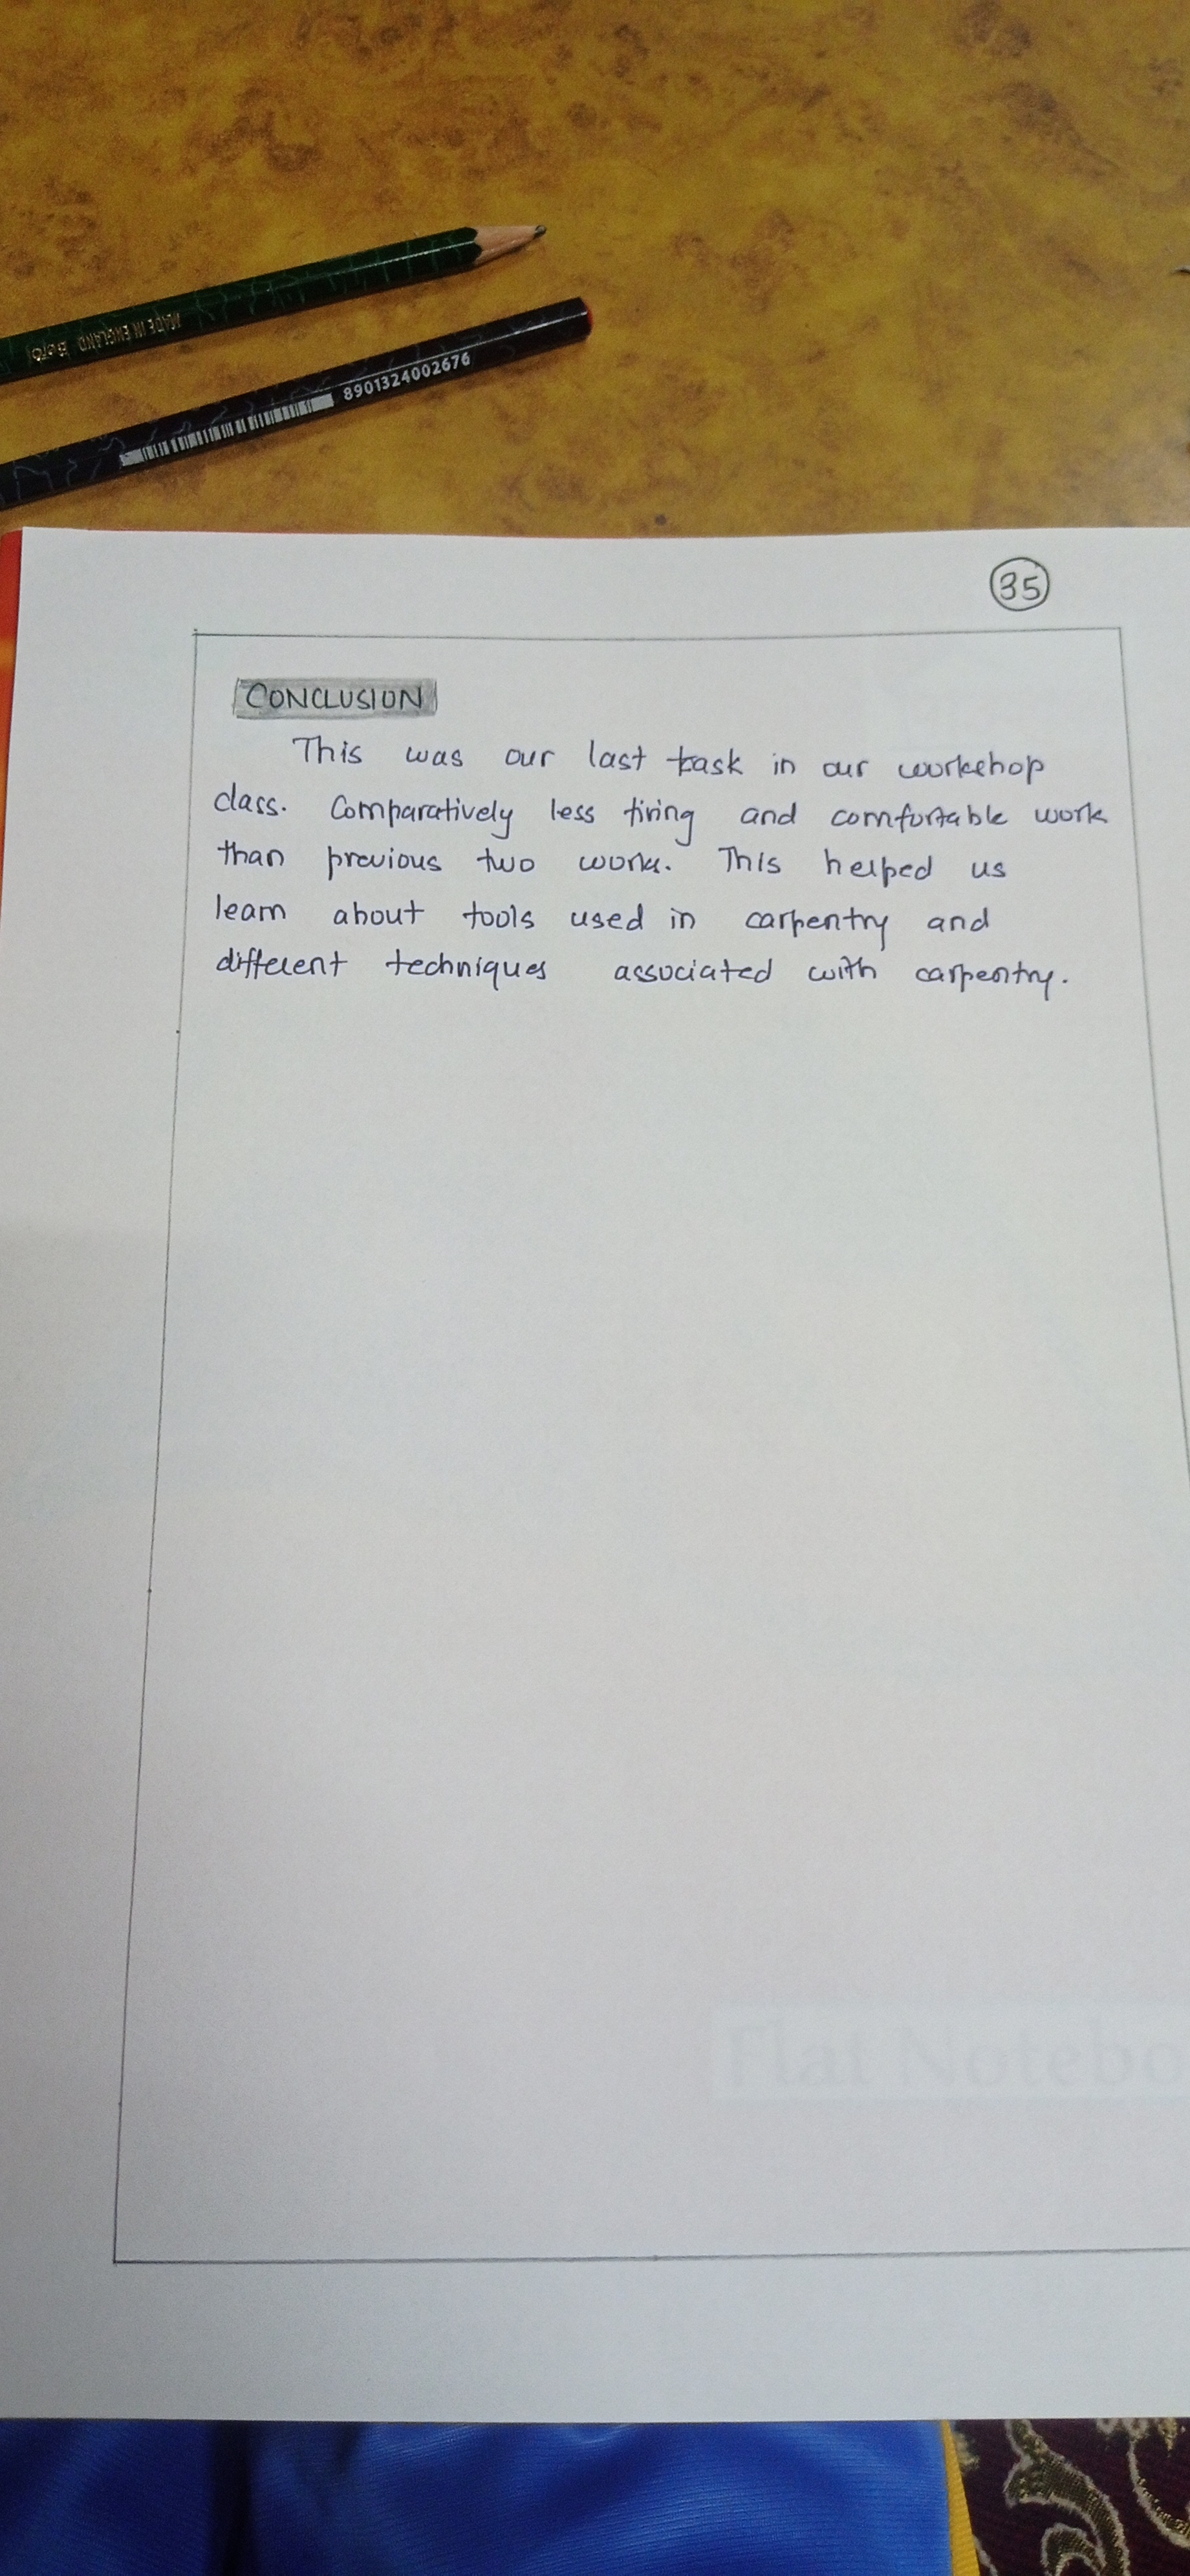 MADE IN ENGLAND
8901324002676
35
CONCLUSION
This was our last task in our workshop
class. Comparatively less tiring and comfortable work
than previous two works. This helped us
learn about tools used in carpentry and
different techniques associated with carpentry.
Flat Notebo